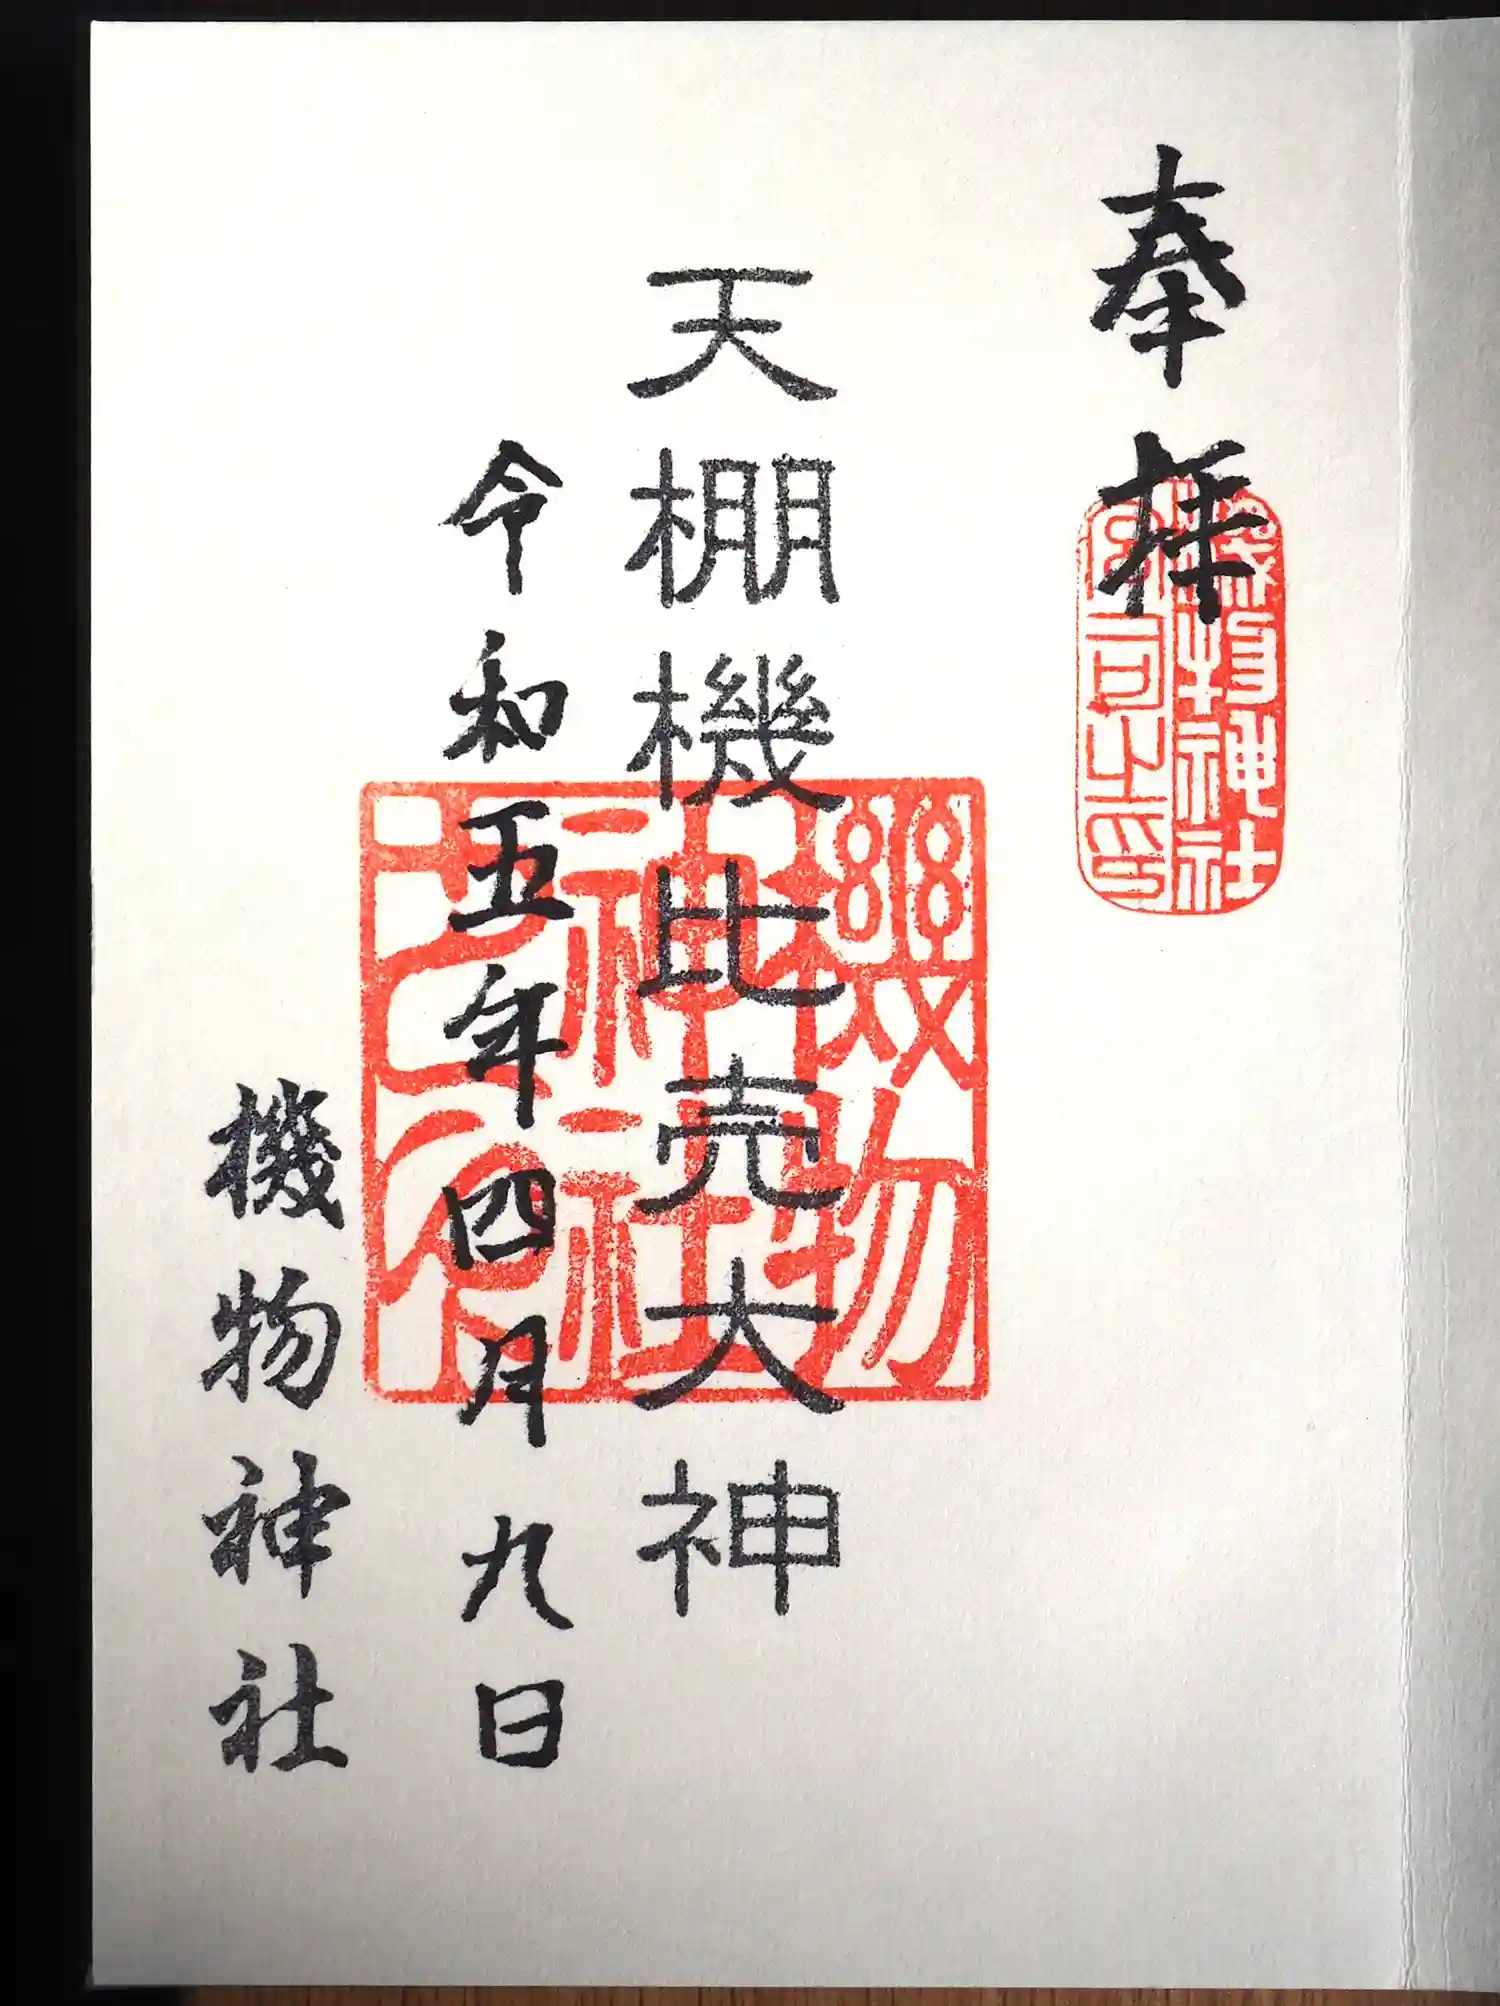 奉拝
機物神社
宮司之印
天棚機比売大神
機物
神社
令和五年四月九日
機物神社